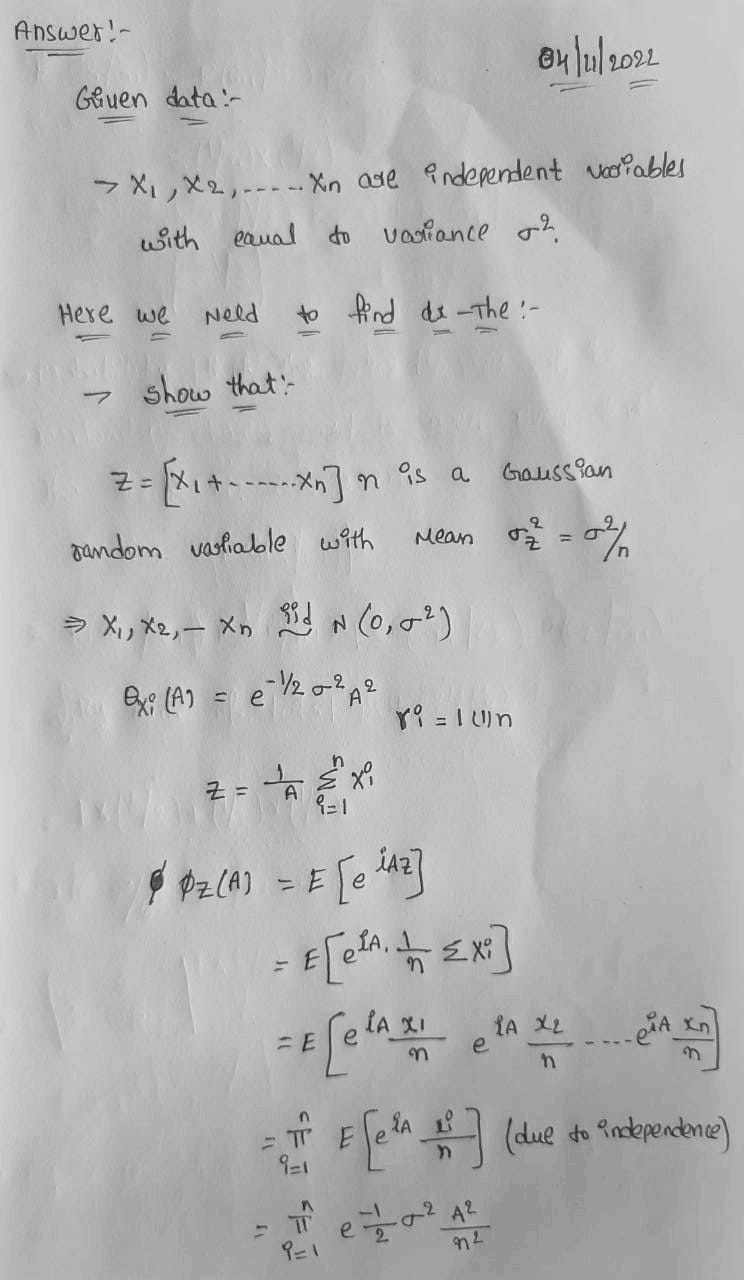 Answer:-
04/11/2022
Given data:-
→ X₁, X₂, ----- Xn are independent variables
with equal to variance σ².
Here we Need to find de -The:-
→ show that:-
Z = [X₁ + ------- Xn] n is a Gaussian
random variable with Mean σ_Z² = σ²/n
⇒ X₁, X₂, — Xn iid N (0, σ²)
θxi (A) = e^{-1/2 σ² A²}
ri = 1(1)n
Z = 1/A Σ_{i=1}^{n} Xi
φZ(A) = E [e^{iAZ}]
= E [e^{iA. 1/n Σ Xi}]
= E [e^{iA x₁/n} e^{iA x₂/n} ----- e^{iA xn/n}]
= π_{i=1}^{n} E [e^{iA xi/n}] (due to independence)
= π_{i=1}^{n} e^{-1/2 σ² A²/n²}